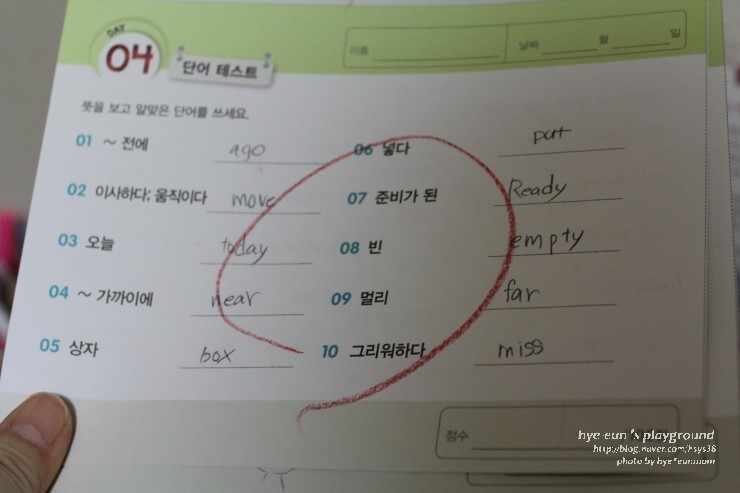 DAY
04 단어 테스트
이름 날짜 월 일
뜻을 보고 알맞은 단어를 쓰세요.
01 ~ 전에 ago
02 이사하다; 움직이다 move
03 오늘 today
04 ~ 가까이에 near
05 상자 box
06 넣다 put
07 준비가 된 Ready
08 빈 empty
09 멀리 far
10 그리워하다 miss
점수
hye-eun's playground
http://blog.naver.com/hsys38
photo by hye*eunmom